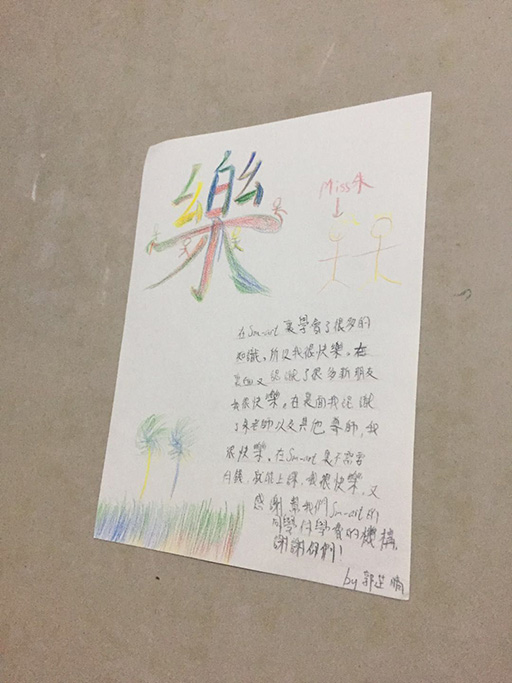 樂
Miss朱
在Sm-art 裏學會了很多的
知識，所以我很快樂。在
裏面又認識了很多新朋友
我很快樂，在裏面我認識
了朱老師以及其他導師，我
很快樂。在Sm-art 裏不需要
月錢，就能上課，我很快樂，又
感謝幫我們Sm-art的
同學付學費的機構，
謝謝你們！
by 郭芷